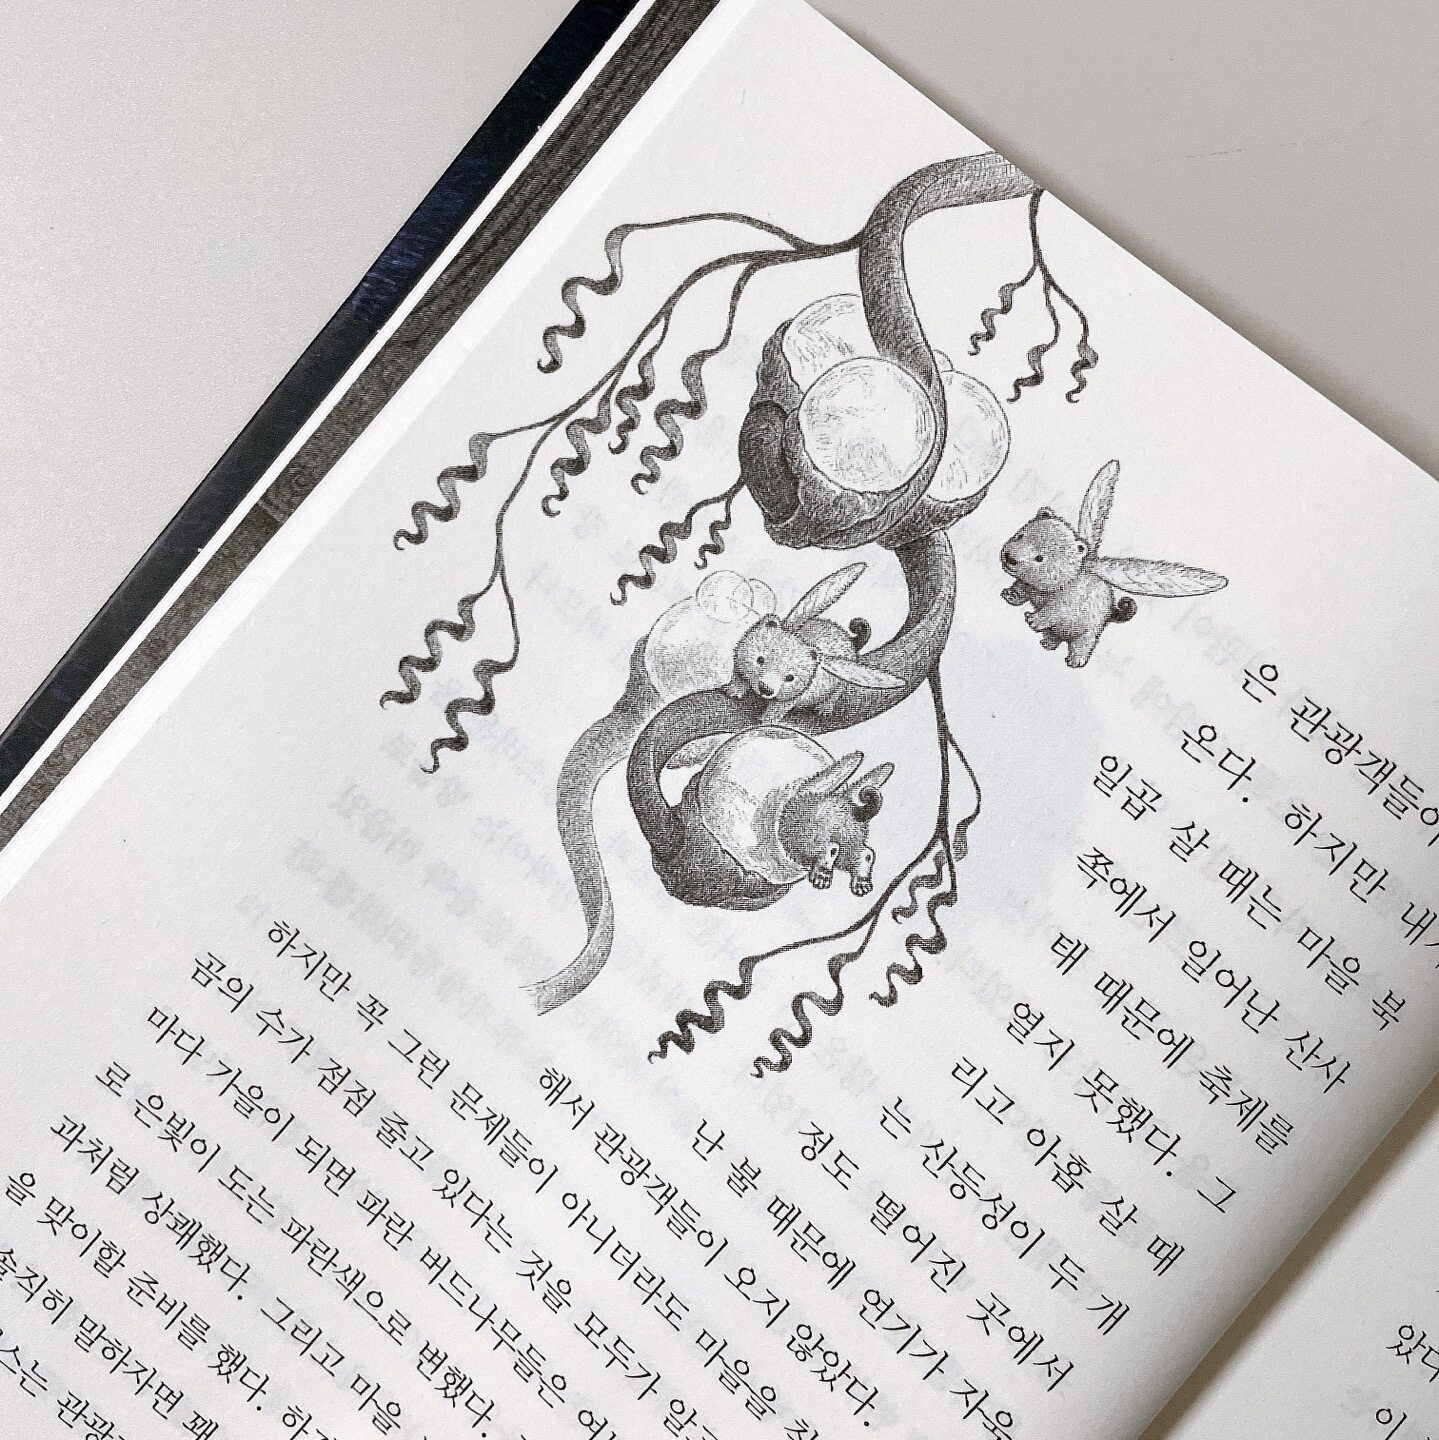 은 관광객들이
온다. 하지만 내가
일곱 살 때는 마을 북
쪽에서 일어난 산사
태 때문에 축제를
열지 못했다. 그
리고 아홉 살 때
는 산등성이 두 개
정도 떨어진 곳에서
난 불 때문에 연기가 자욱
해서 관광객들이 오지 않았다.
하지만 꼭 그런 문제들이 아니더라도 마을을
곰의 수가 점점 줄고 있다는 것을 모두가
마다 가을이 되면 파란 버드나무들은
로 은빛이 도는 파란색으로 변했다.
과처럼 상쾌했다. 그리고 마을
을 맞이할 준비를 했다.
솔직히 말하자면 꽤
스는
았다
이